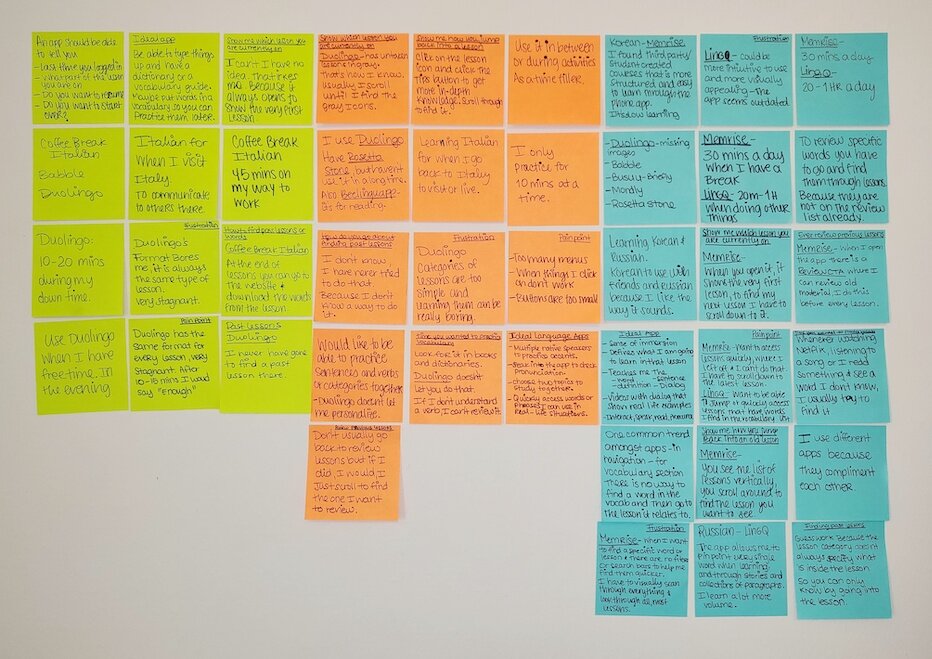 An app should be able
to tell you
- Last time you logged in
- What part of the lesson
you are on
- Do you want to resume
- Do you want to start
over?
Ideal app
Be able to type things
up and have a
dictionary or a
vocabulary guide.
Maybe put words in a
vocabulary so you can
Practice them later.
Show me which lesson you
are currently on
I can't I have no
idea. That irkes
me. Because it
always opens to
show the very first
lesson.
Show which lesson you
are currently on
Duolingo - has untaken
lessons in grays
that's how I know.
usually I scroll
until I find the
gray icons.
Show me how you jump
back into a lesson
click on the lesson
icon and click the
tips button to get
more in-depth
knowledge. Scroll through
to find it.
Use it in between
or during activities
As a time filler.
Korean - Memrise
I found third party/
student created
courses that is more
structured and easy
to learn through the
phone app.
It's slow learning
Frustration
LingQ - could be
more intuitive to use
and more visually
appealing - the
app seems outdated
Memrise -
30 mins a day
LingQ -
20 - 1 HR a day
Coffee Break
Italian
Babble
Duolingo
Italian for
when I visit
Italy.
To communicate
to others there.
Coffee Break
Italian
45 mins on
my way to
work
I use Duolingo
Have Rosetta
Store, but haven't
use it in a long time.
Also Beelinguapp -
is for reading.
Learning Italian
for when I go
back to Italy
to visit or live.
I only
practice for
10 mins at a
time.
- Duolingo - missing
images
- Babble
- Busuu - Briefly
- Mondly
- Rosetta stone
Memrise -
30 mins a day
when I have a
Break
LingQ - 20m - 1H
when doing other
things
To review specific
words you have
to go and find
them through lessons.
Because they are
not on the review
list already.
Duolingo:
10-20 mins
during my
down time.
Frustration
Duolingo's
Format Bores
me, it is always
the same type of
lesson.
Very stagnant.
How to find past lessons
or words
Coffee Break Italian
At the end of
lessons you can go to
the website &
download the words
from the lesson.
How do you go about
finding past lessons
I don't know
I have never tried
to do that.
Because I don't
know a way to do it.
Frustration
Duolingo
Categories of
lessons are too
simple and
learning them can be
really boring.
Pain point
- Too many menus
- When things I click
on don't work
- Buttons are too small
Learning Korean &
Russian.
Korean to use with
friends and russian
because I like the
way it sounds.
Show me which lesson you
are currently on
Memrise -
When you open it, it
shows the very first
lesson, to find my
next lesson I have to
scroll down to it.
Ever review previous lessons
Memrise - when I open
the app there is a
Review CTA where I
can review old
material. I do this
before every lesson.
Use Duolingo
when I have
free time. In
the evening
Pain Point
Duolingo has the
same format for
every lesson, very
stagnant. After
10-15 mins I would
say "Enough"
Past Lessons
Duolingo
I never have gone
to find a past
lesson there.
Would like to be
able to practice
sentences and verbs
or categories together
- Duolingo doesn't let
me personalize.
Time you wanted to practice
Look for it in books
and dictionaries.
Duolingo doesn't
let you do that.
If I don't understand
a verb I can't review it.
Ideal Language Apps
- Multiple native speakers
to practice accents.
- Speak into the app to check
pronunciation
- choose two topics to
study together.
- Quickly access words or
phrases I can use in
real-life situations.
Ideal App
- Sense of immersion
- Defines what I am going
to learn in that lesson
- Teaches me the
- word - sentence
- definition - dialog
- Videos with dialog that
show real life examples
Pain point
Memrise - want to access
lessons quickly, where I
left off & I can't do that.
I have to scroll down to
the latest lesson.
LingQ - Want to be able
to Jump or quickly access
lessons that have words I
find in the vocabulary list
Whenever watching
Netflix, listening to
a song or I read
something & see a
word I don't know,
I usually try to
find it
Review previous lessons
Don't usually go
back to review
lessons but if I
did, I would I
Just scroll to find
the one I want
to review.
One common trend
amongst apps - in
navigation - for
vocabulary section
There is no way to
find a word in the
vocab and then go to
the lesson it relates to.
Show me how you jump
back into an old lesson
Memrise -
you see the list of
lessons vertically,
you scroll around to
find the lesson you
want to see.
I use different
apps because
they compliment
each other.
Frustration
Memrise - when I want
to find a specific word or
lesson & there are no filters
or search bars to help me
find them quicker.
I have to visually scan
through everything &
look through all past
lessons.
Russian - LingQ
The app allows me to
pin point every single
word when learning
and through stories and
collections of paragraphs.
I learn a lot more
volume.
Guess work Because the
lesson category doesn't
always specify what
is inside the lesson
so you can only
know by going into
the lesson.